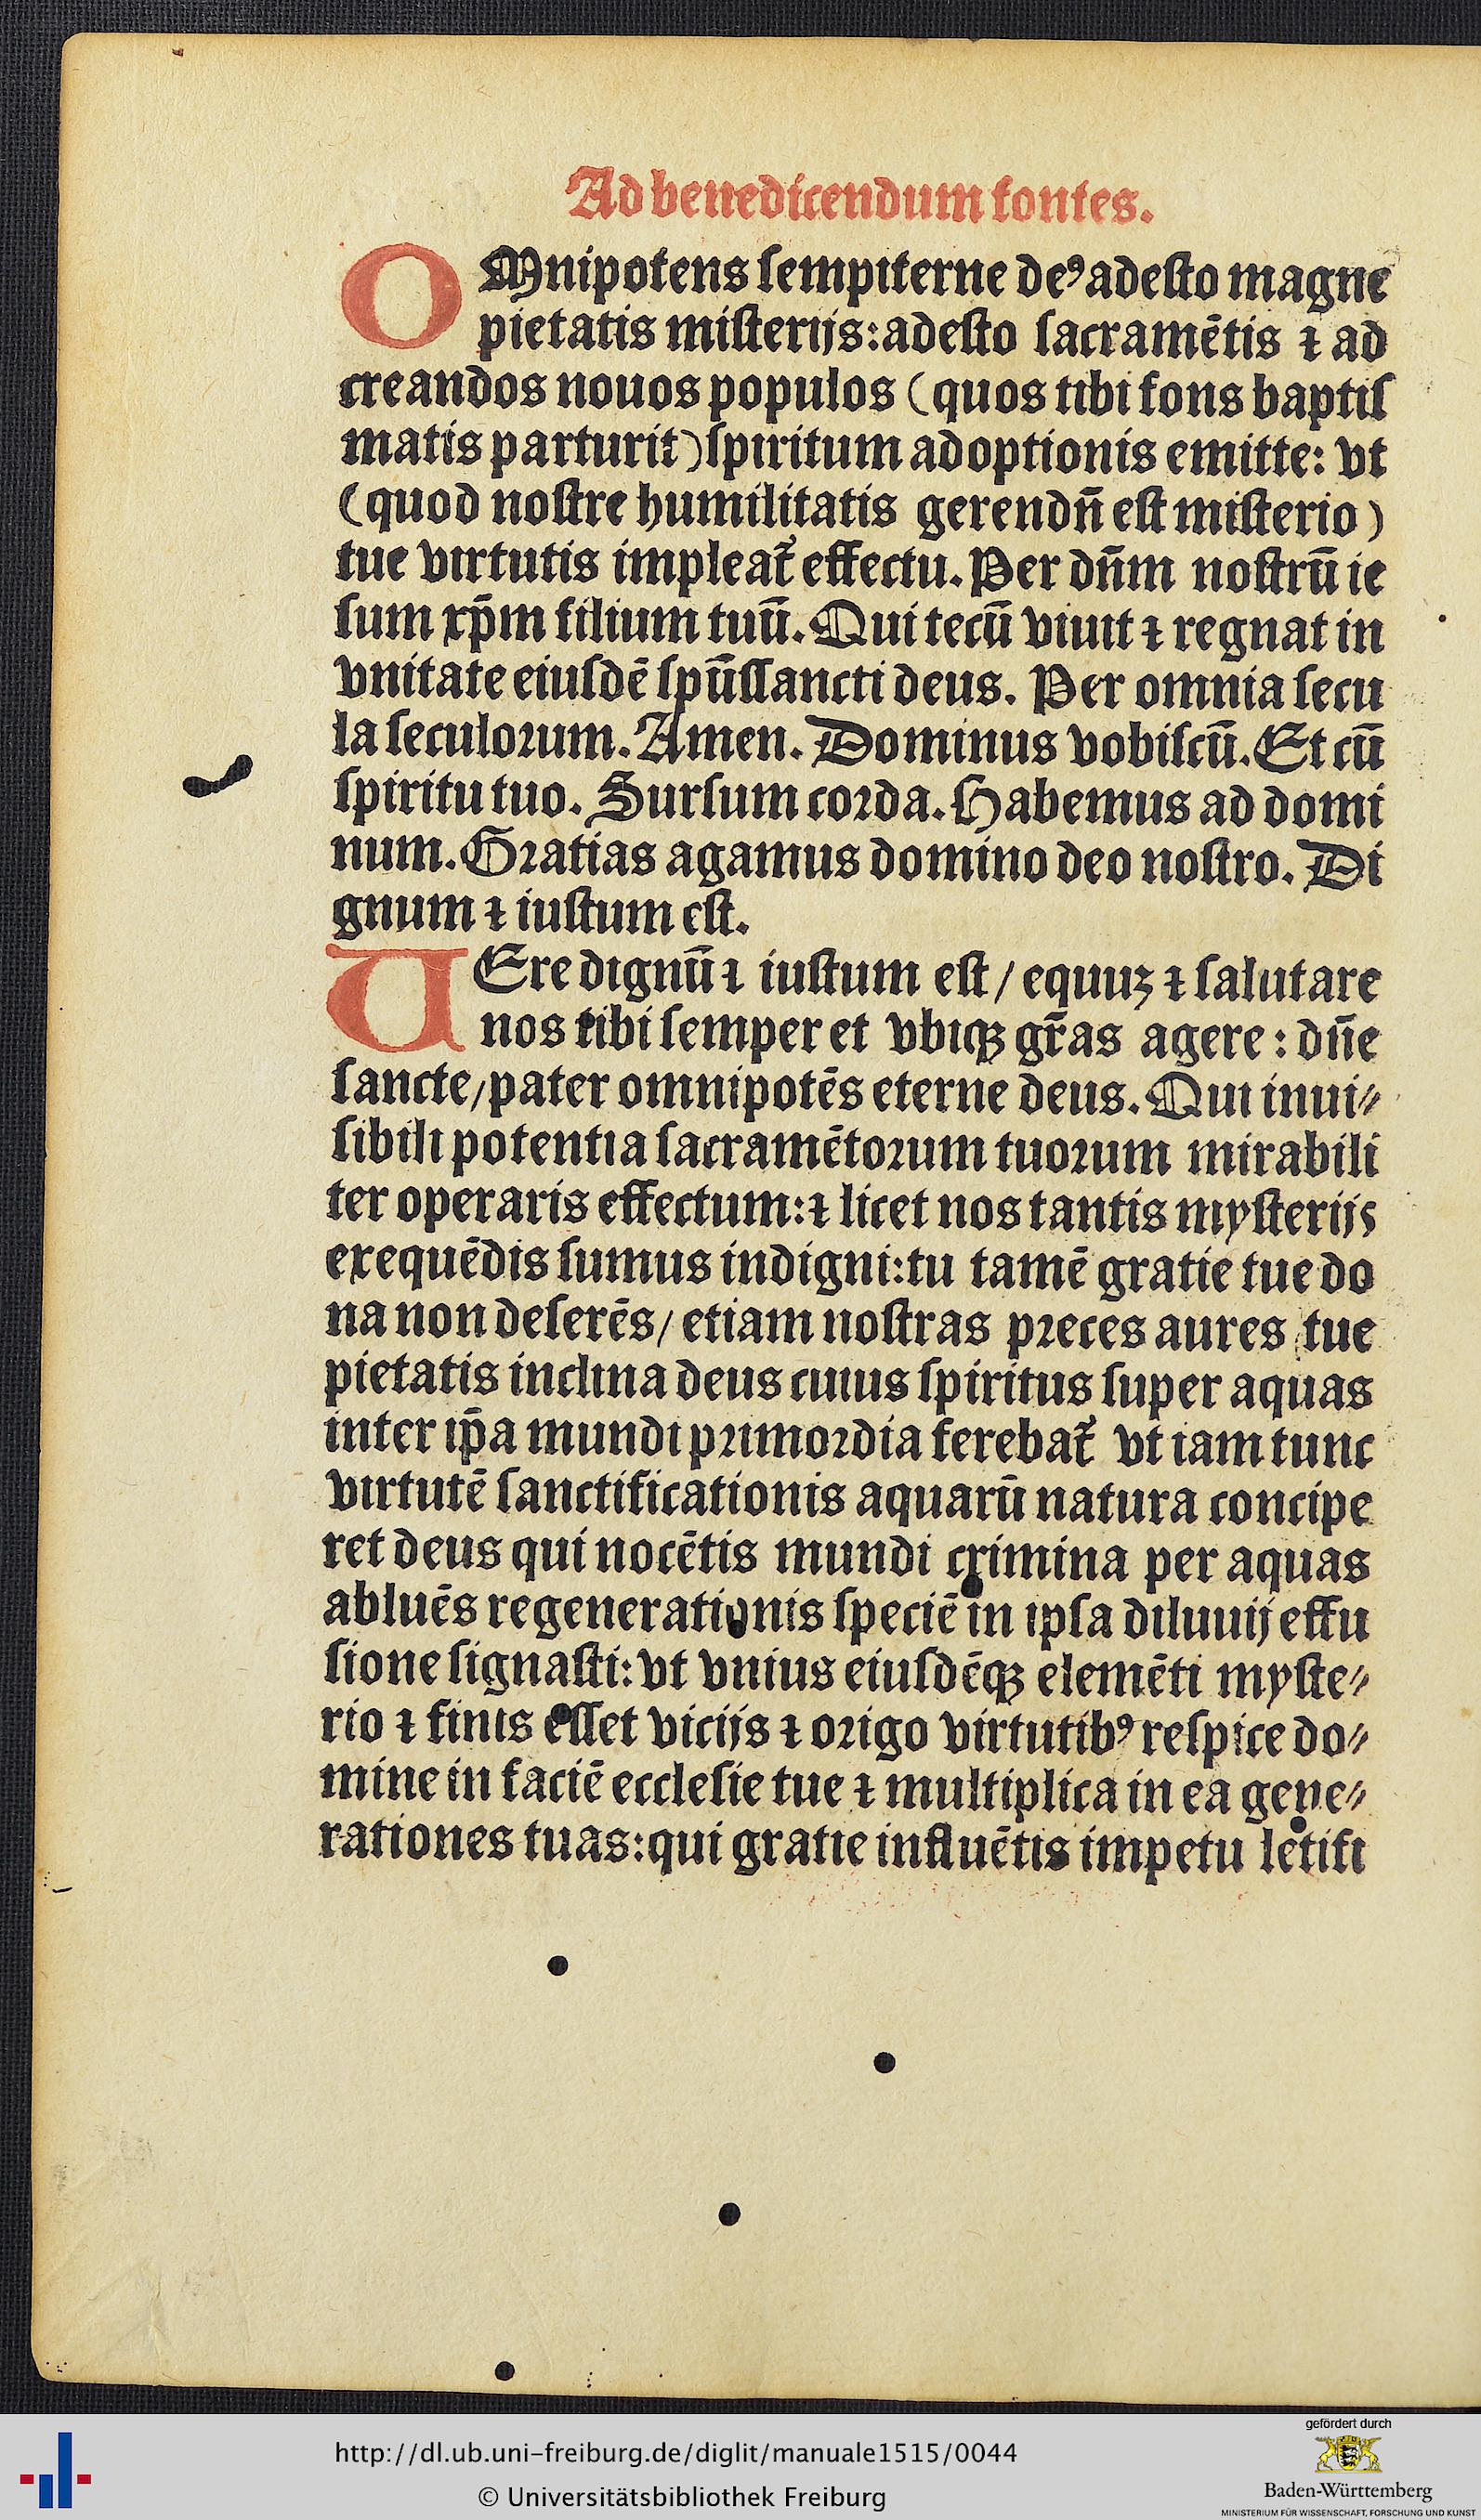 Ad benedicendum fontes.
OMnipotens ſempiterne deꝰ adeſto magne
pietatis miſterijs: adeſto ſacramētis ⁊ ad
creandos nouos populos (quos tibi fons baptiſ
matis parturit) ſpiritum adoptionis emitte: vt
(quod noſtre humilitatis gerendū eſt miſterio)
tue virtutis impleat᷑ effectu. Per dn̄m noſtrū ie
ſum xp̄m filium tuū. Qui tecū viuit ⁊ regnat in
vnitate eiuſdē ſpūſſancti deus. Per omnia ſecu
la ſeculoꝛum. Amen. Dominus vobiſcū. Et cū
ſpiritu tuo. Surſum coꝛda. Habemus ad domi
num. Gꝛatias agamus domino deo noſtro. Di
gnum ⁊ iuſtum eſt.
VEre dignū ⁊ iuſtum eſt / equuꝫ ⁊ ſalutare
nos tibi ſemper et vbiqꝫ gr̄as agere: dn̄e
ſancte / pater omnipotēs eterne deus. Qui inui⸗
ſibili potentia ſacramētoꝛum tuoꝛum mirabili
ter operaris effectum: ⁊ licet nos tantis myſterijs
exequēdis ſumus indigni: tu tamē gratie tue do
na non deſerēs / etiam noſtras pꝛeces aures tue
pietatis inclina deus cuius ſpiritus ſuper aquas
inter ip̄a mundi pꝛimoꝛdia ferebat᷑ vt iam tunc
virtutē ſanctificationis aquarū natura concipe
ret deus qui nocētis mundi crimina per aquas
abluēs regenerationis ſpeciē in ipſa diluuij effu
ſione ſignaſti: vt vnius eiuſdēqꝫ elemēti myſte⸗
rio ⁊ finis eſſet vicijs ⁊ oꝛigo virtutibꝰ reſpice do⸗
mine in faciē eccleſie tue ⁊ multiplica in ea gene⸗
rationes tuas: qui gratie influētis impetu letifi
http://dl.ub.uni-freiburg.de/diglit/manuale1515/0044
© Universitätsbibliothek Freiburg
gefördert durch
Baden-Württemberg
MINISTERIUM FÜR WISSENSCHAFT, FORSCHUNG UND KUNST